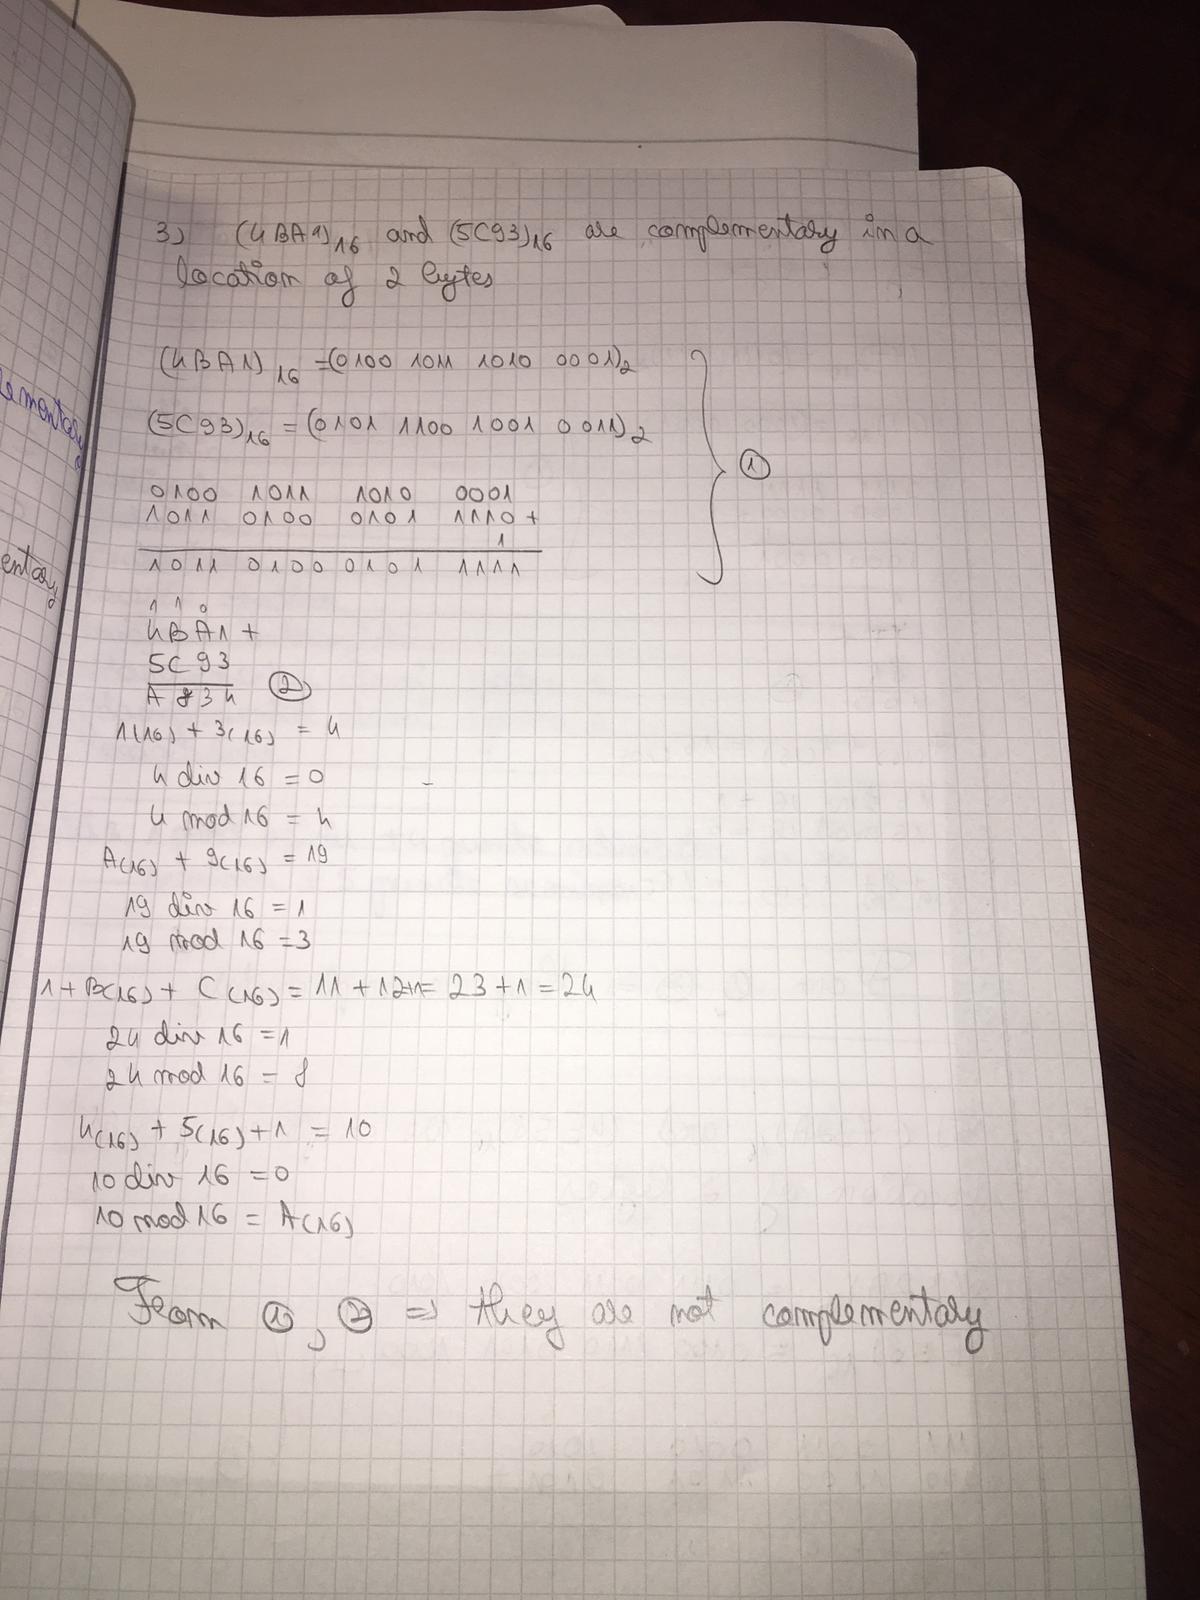 3) (4BA1)16 and (5C93)16 are complementary in a
location of 2 bytes
(4BA1)16 =(0100 1011 1010 0001)2
(5C93)16 = (0101 1100 1001 0011)2
1
0100 1011 1010 0001
1011 0100 0101 1110 +
1
1011 0100 0101 1111
1 1 0
4BA1 +
5C93
A834 2
1(16) + 3(16) = 4
4 div 16 = 0
4 mod 16 = 4
A(16) + 9(16) = 19
19 div 16 = 1
19 mod 16 = 3
1+B(16) + C(16) = 11 + 12+1= 23+1 = 24
24 div 16 = 1
24 mod 16 = 8
4(16) + 5(16) + 1 = 10
10 div 16 = 0
10 mod 16 = A(16)
From 1, 2 => they are not complementary
ementary
entary